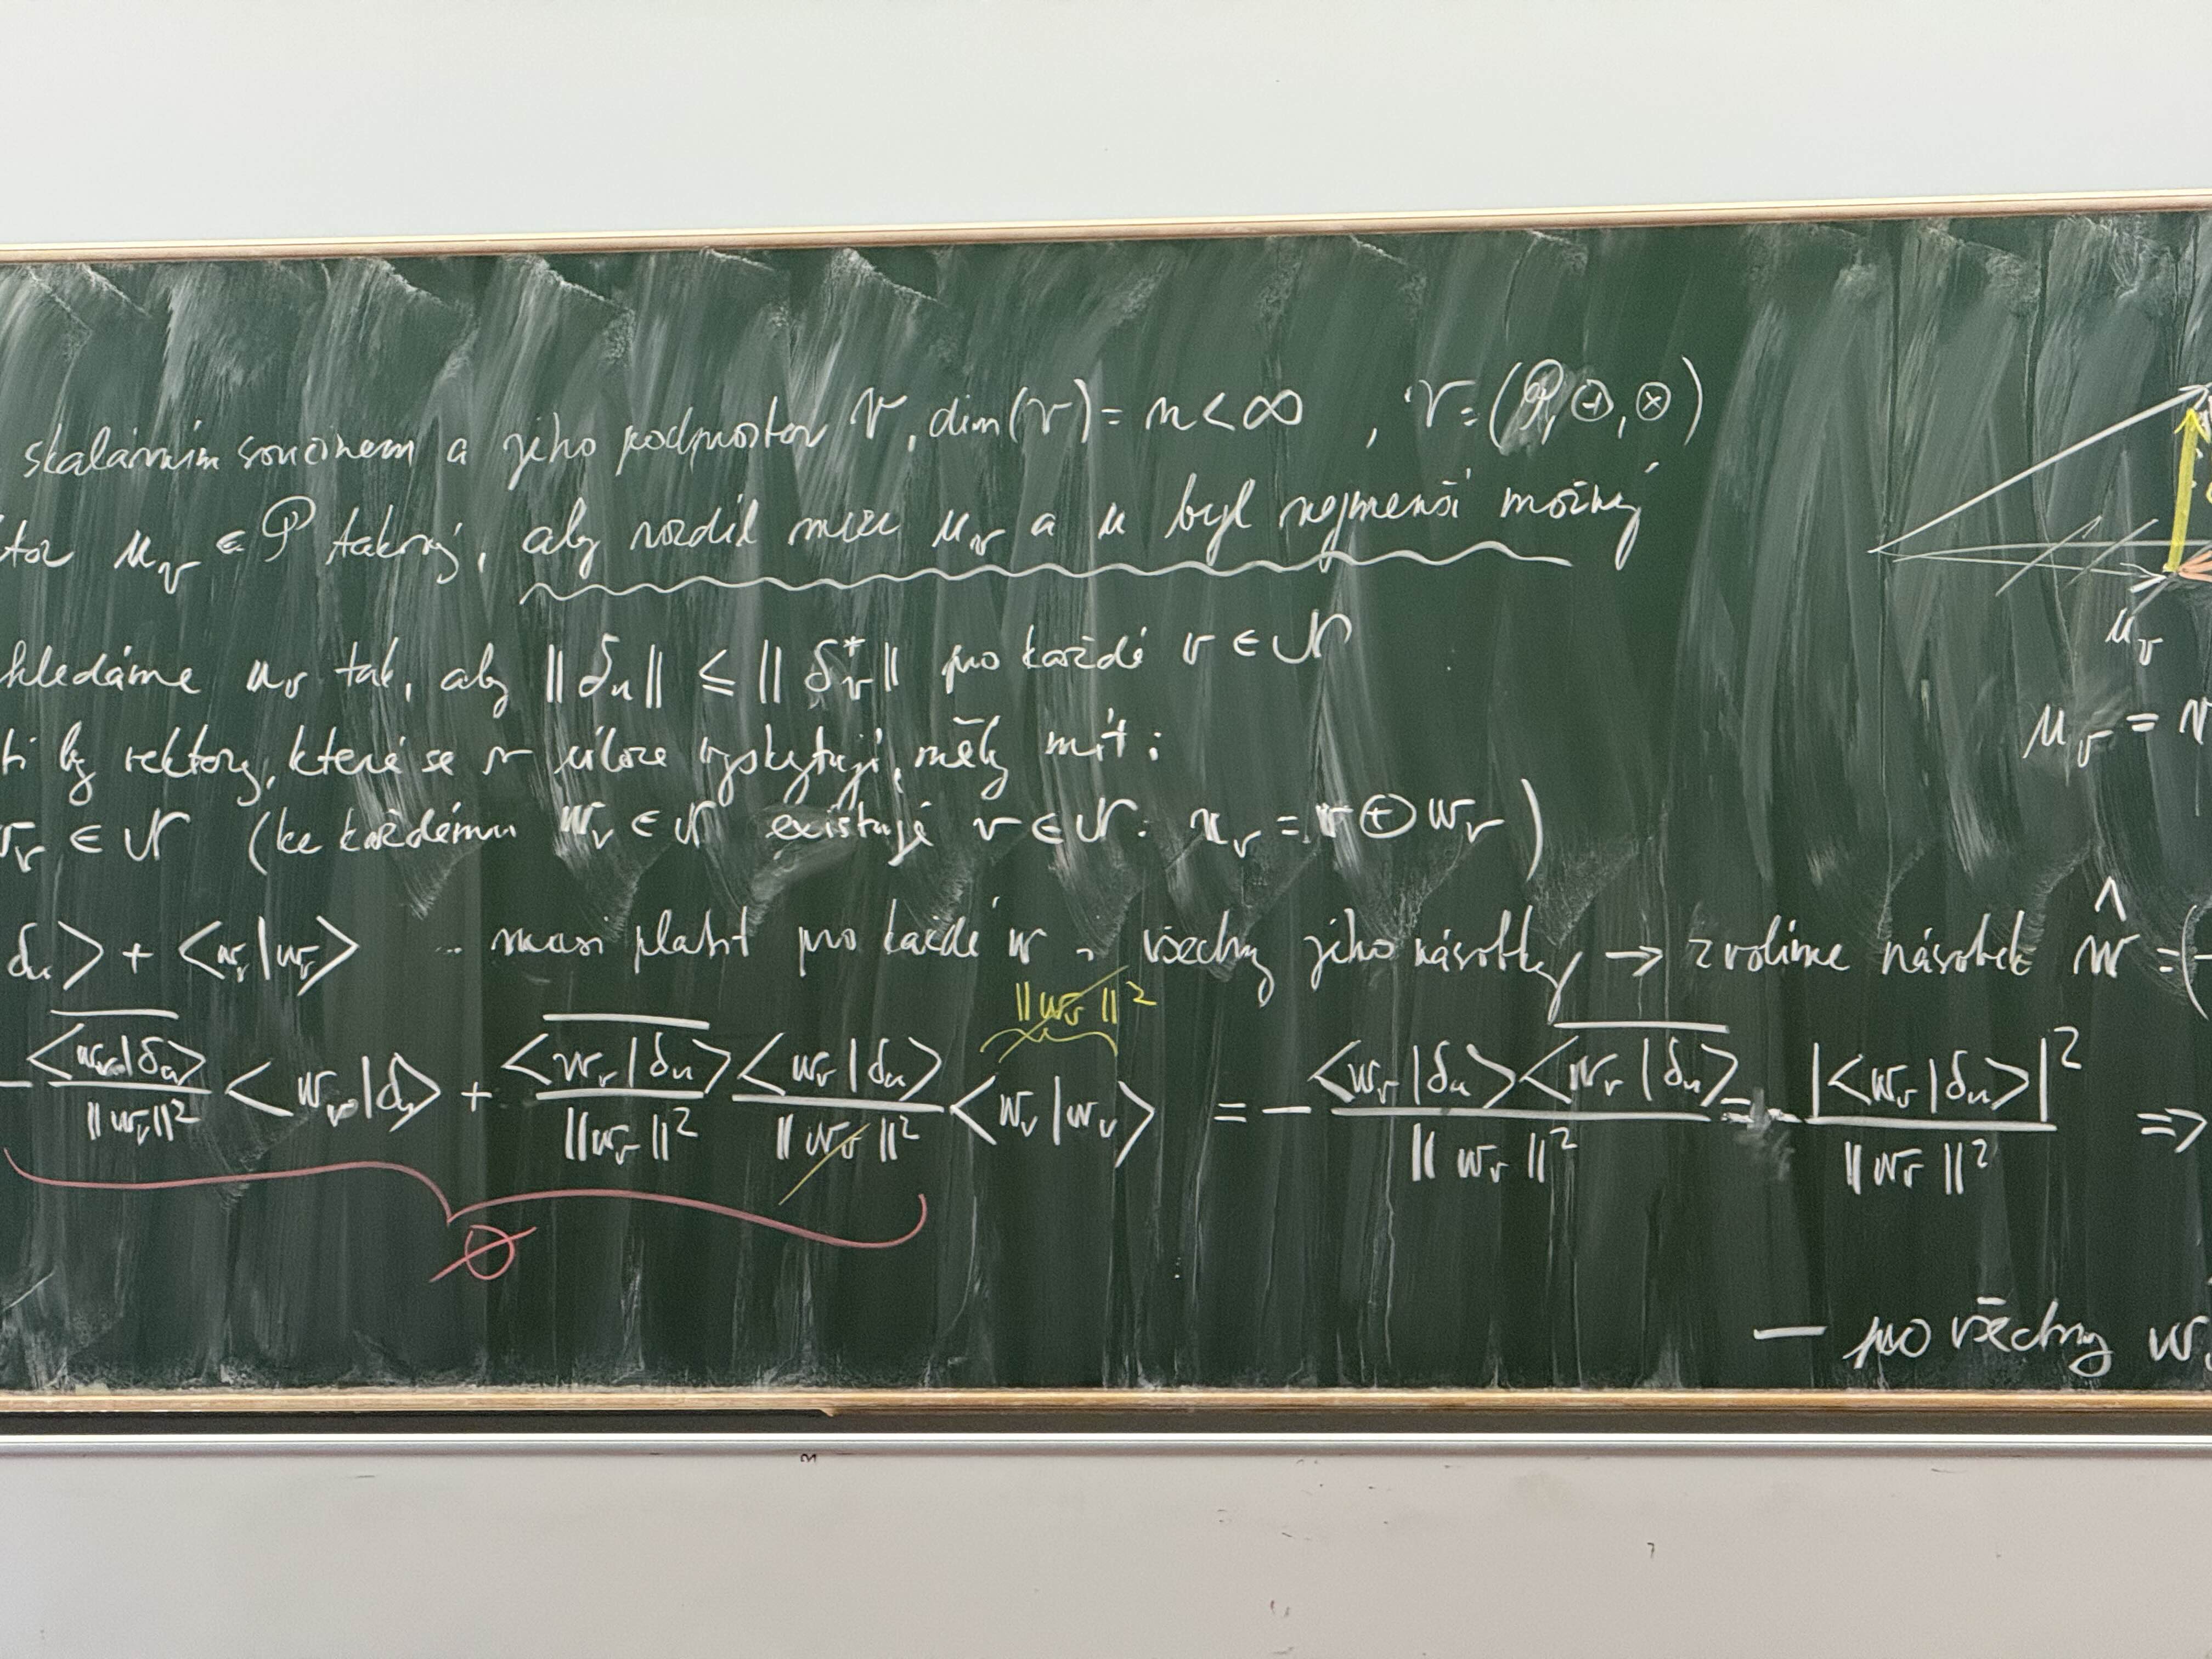 skalárním součinem a jeho podprostor 𝒱, dim(𝒱) = n < ∞ , 𝒱 = (𝒫, ⊕, ⊗)
tor u_v ∈ 𝒫 takový, aby rozdíl mezi u_v a u byl nejmenší možný
hledáme u_v tak, aby ‖δ_u‖ ≤ ‖δ_v^*‖ pro každé v ∈ 𝒱
ti by vektory, které se v úloze vyskytují, měly mít:
w_v ∈ 𝒱 (ke každému w_v ∈ 𝒱 existuje v ∈ 𝒱: u_v = v ⊕ w_v)
δ_u⟩ + ⟨w_v|w_v⟩ .. musí platit pro každé w všechny jeho násobky → zvolíme násobek ŵ = (-
‖w_v‖²
- \overline{⟨w_v|δ_u⟩}/‖w_v‖² ⟨w_v|δ_u⟩ + \overline{⟨w_v|δ_u⟩}/‖w_v‖² ⟨w_v|δ_u⟩/‖w_v‖² ⟨w_v|w_v⟩ = - ⟨w_v|δ_u⟩\overline{⟨w_v|δ_u⟩}/‖w_v‖² = - |⟨w_v|δ_u⟩|²/‖w_v‖² ⇒
0
— pro všechny w_v
u_v
u_v = v